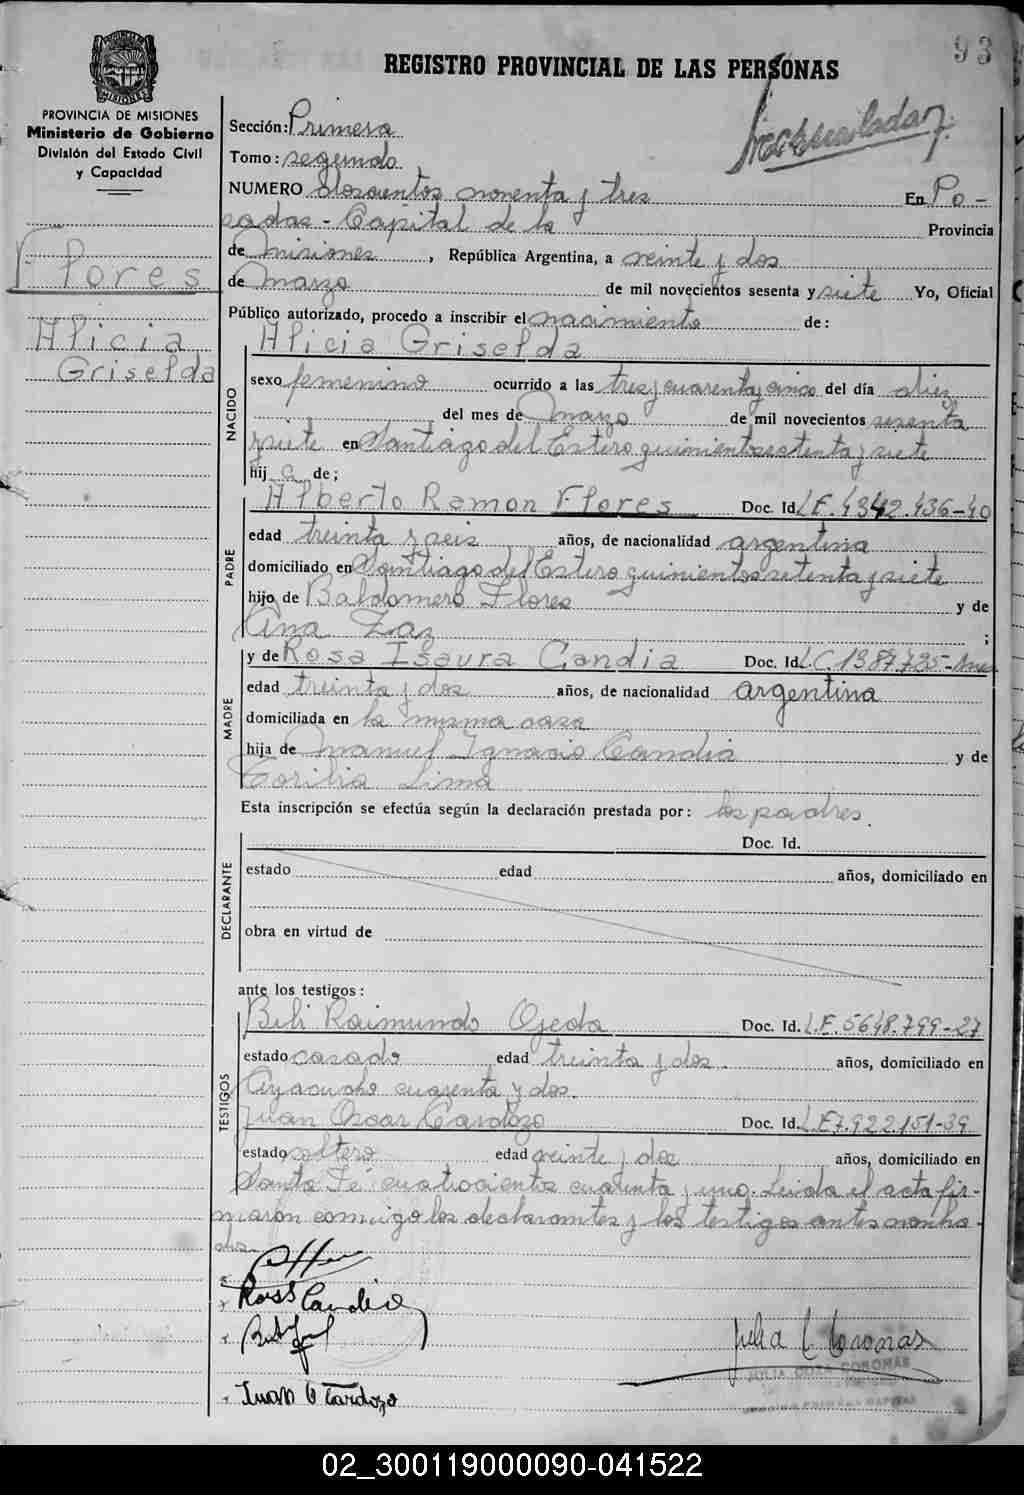 93
REGISTRO PROVINCIAL DE LAS PERSONAS
PROVINCIA DE MISIONES
Ministerio de Gobierno
División del Estado Civil
y Capacidad
Flores
Alicia
Griselda
Sección: Primera
Tomo: segundo
NUMERO doscientos noventa y tres En Po-
sadas - Capital de la Provincia
de Misiones, República Argentina, a veinte y dos
de Marzo de mil novecientos sesenta y siete Yo, Oficial
Público autorizado, procedo a inscribir el nacimiento de:
NACIDO
Alicia Griselda
sexo femenino ocurrido a las tres y cuarenta y cinco del día diez
del mes de Marzo de mil novecientos sesenta
y siete en Santiago del Estero quinientos setenta y siete
hija de;
PADRE
Alberto Ramon Flores Doc. Id. L.E. 4342.436-40
edad treinta y seis años, de nacionalidad argentina
domiciliado en Santiago del Estero quinientos setenta y siete
hijo de Baldomero Flores y de
Ana Zaz ;
MADRE
y de Rosa Isaura Candia Doc. Id. L.C. 1387.735-Mnes
edad treinta y dos años, de nacionalidad argentina
domiciliada en la misma casa
hija de Manuel Ignacio Candia y de
Corilia Lima
Esta inscripción se efectúa según la declaración prestada por: los padres.
DECLARANTE
Doc. Id.
estado edad años, domiciliado en
obra en virtud de
ante los testigos:
TESTIGOS
Beli Raimundo Ojeda Doc. Id. L.E. 5648.799-27
estado casado edad treinta y dos. años, domiciliado en
Ayacucho cuarenta y dos.
Juan Oscar Cardozo Doc. Id. L.E 7.922.151-39
estado soltero edad veinte y dos años, domiciliado en
Santa Fé cuatrocientos cuarenta y uno. Leida el acta fir-
maron conmigo los declarantes y los testigos antes nombra-
dos.
Rosa Candia
Juan O Cardozo
Julia C Coronas
JULIA CORONAS
02_300119000090-041522